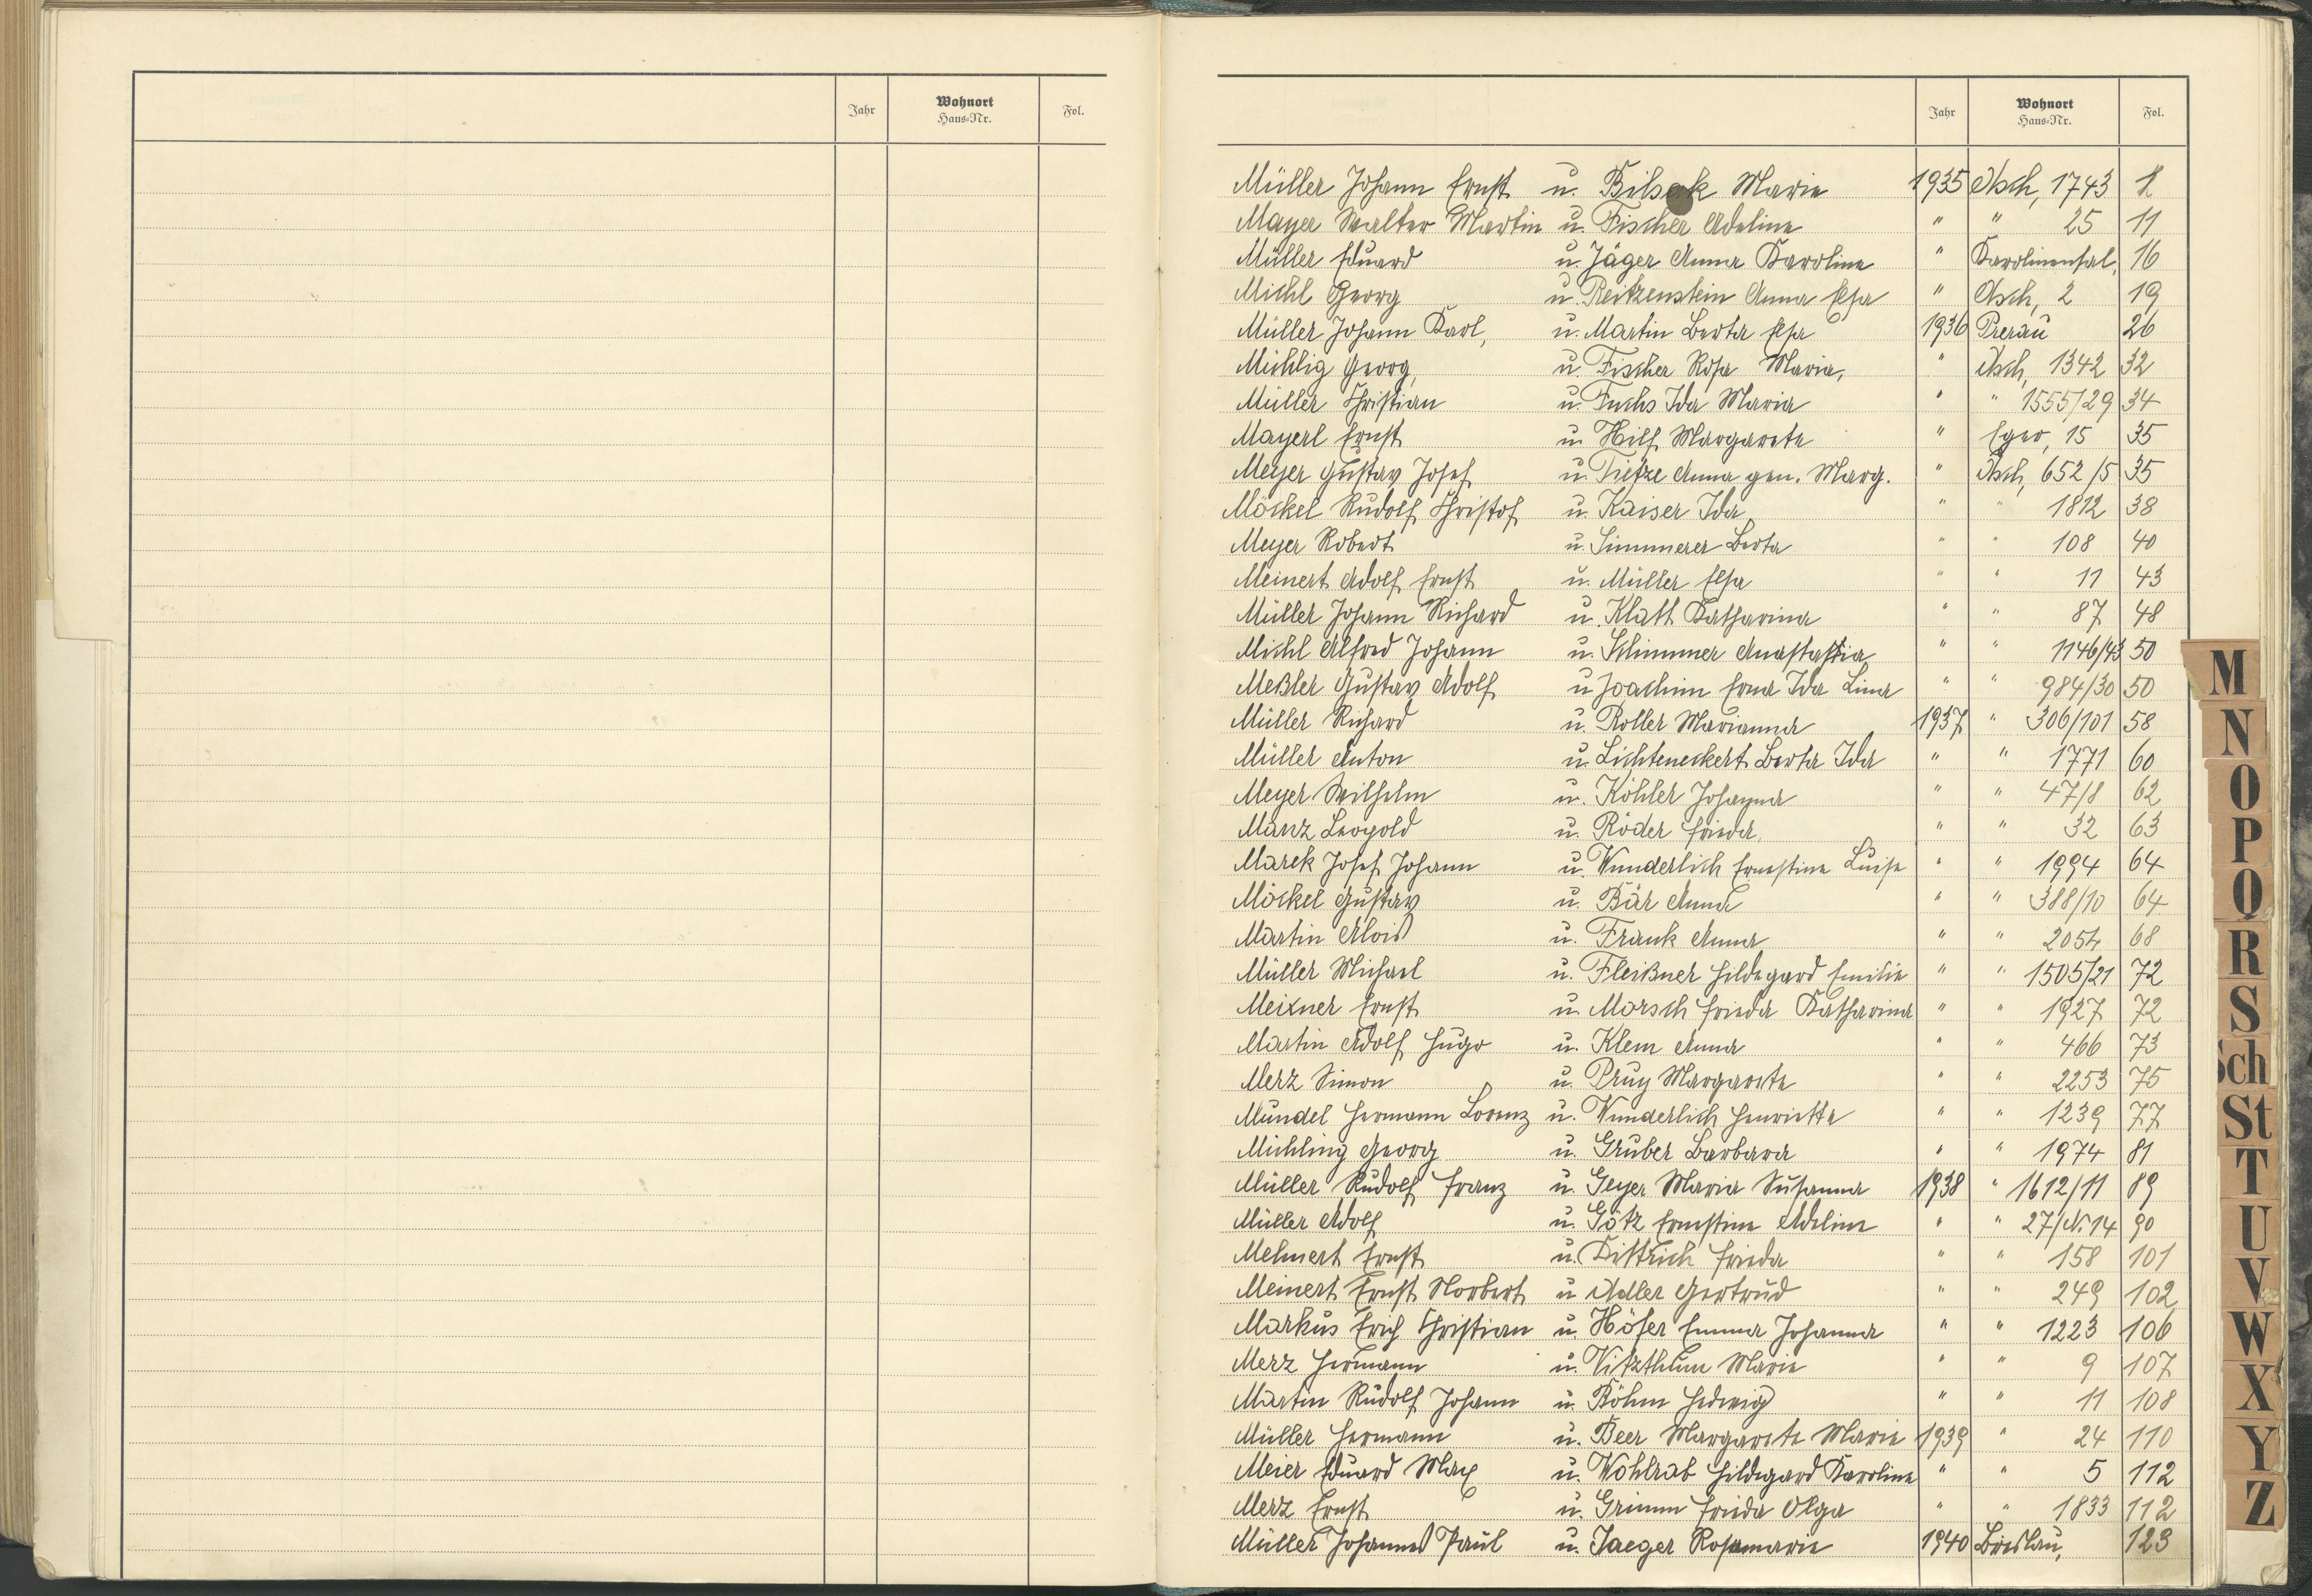 Jahr Wohnort Haus-Nr. Fol.
Jahr Wohnort Haus-Nr. Fol.
Müller Johann Ernst u. Bilsak Marie 1935 Asch, 1743 2
Mayer Walter Martin u. Fischer Adeline " " 25 11
Müller Eduard u. Jäger Anna Karoline " Karolinental, 16
Michl Georg u. Reitzenstein Anna Elsa " Asch, 2 19
Müller Johann Karl, u. Martin Berta Elsa 1936 Prerau 26
Michlig Georg, u. Fischer Rosa Maria, " Asch, 1342 32
Müller Christian u. Fuchs Ida Maria " " 1555/29 34
Mayerl Ernst u. Hilf Margarete " Eger, 15 35
Meyer Gustav Josef u. Tietze Anna gen. Marg. " Asch, 652/5 35
Möckel Rudolf Christof u. Kaiser Ida " " 1812 38
Meyer Robert u. Simmerer Berta " " 108 40
Meinert Adolf Ernst u. Müller Elsa " " 11 43
Müller Johann Richard u. Klatt Katharina " " 87 48
Michl Alfred Johann u. Schimmer Anastasia " " 1146/43 50
Meßler Gustav Adolf u. Joachim Erna Ida Lina " " 984/30 50
Müller Richard u. Roller Marianna 1937 " 306/101 58
Müller Anton u. Lichteneckert Berta Ida " " 1771 60
Meyer Wilhelm u. Köhler Johanna " " 47/8 62
Manz Leopold u. Röder Frieda, " " 32 63
Marek Josef Johann u. Wunderlich Ernestine Luise " " 1994 64
Möckel Gustav u. Bär Anna " " 388/10 64
Martin Alois u. Frank Anna " " 2054 68
Müller Michael u. Fleißner Hildegard Emilie " " 1505/21 72
Meixner Ernst u. Morsch Frieda Katharina " " 1927 72
Martin Adolf Hugo u. Klem Anna " " 466 73
Merz Simon u. Prug Margarete " " 2253 75
Mündel Hermann Lorenz u. Wunderlich Henriette " " 1239 77
Michling Georg u. Gruber Barbara " " 1974 81
Müller Rudolf Franz u. Geyer Maria Susanna 1938 " 1612/11 89
Müller Adolf u. Götz Ernestine Adeline " " 27/N.14 90
Mehnert Ernst u. Dittrich Frieda " " 158 101
Meinert Ernst Norbert u. Adler Gertrud " " 249 102
Markus Erich Christian u. Höfer Emma Johanna " " 1223 106
Merz Hermann u. Vitzthum Marie " " 9 107
Martin Rudolf Johann u. Böhm Hedwig " " 11 108
Müller Hermann u. Beer Margarete Marie 1939 " 24 110
Meier Eduard Max u. Wohlrab Hildegard Karoline " " 5 112
Merz Ernst u. Grimm Frieda Olga " " 1833 112
Müller Johannes Paul u. Jaeger Rosemarie 1940 Breslau, 123
M
N
O
P
Q
R
S
Sch
St
T
U
V
W
X
Y
Z